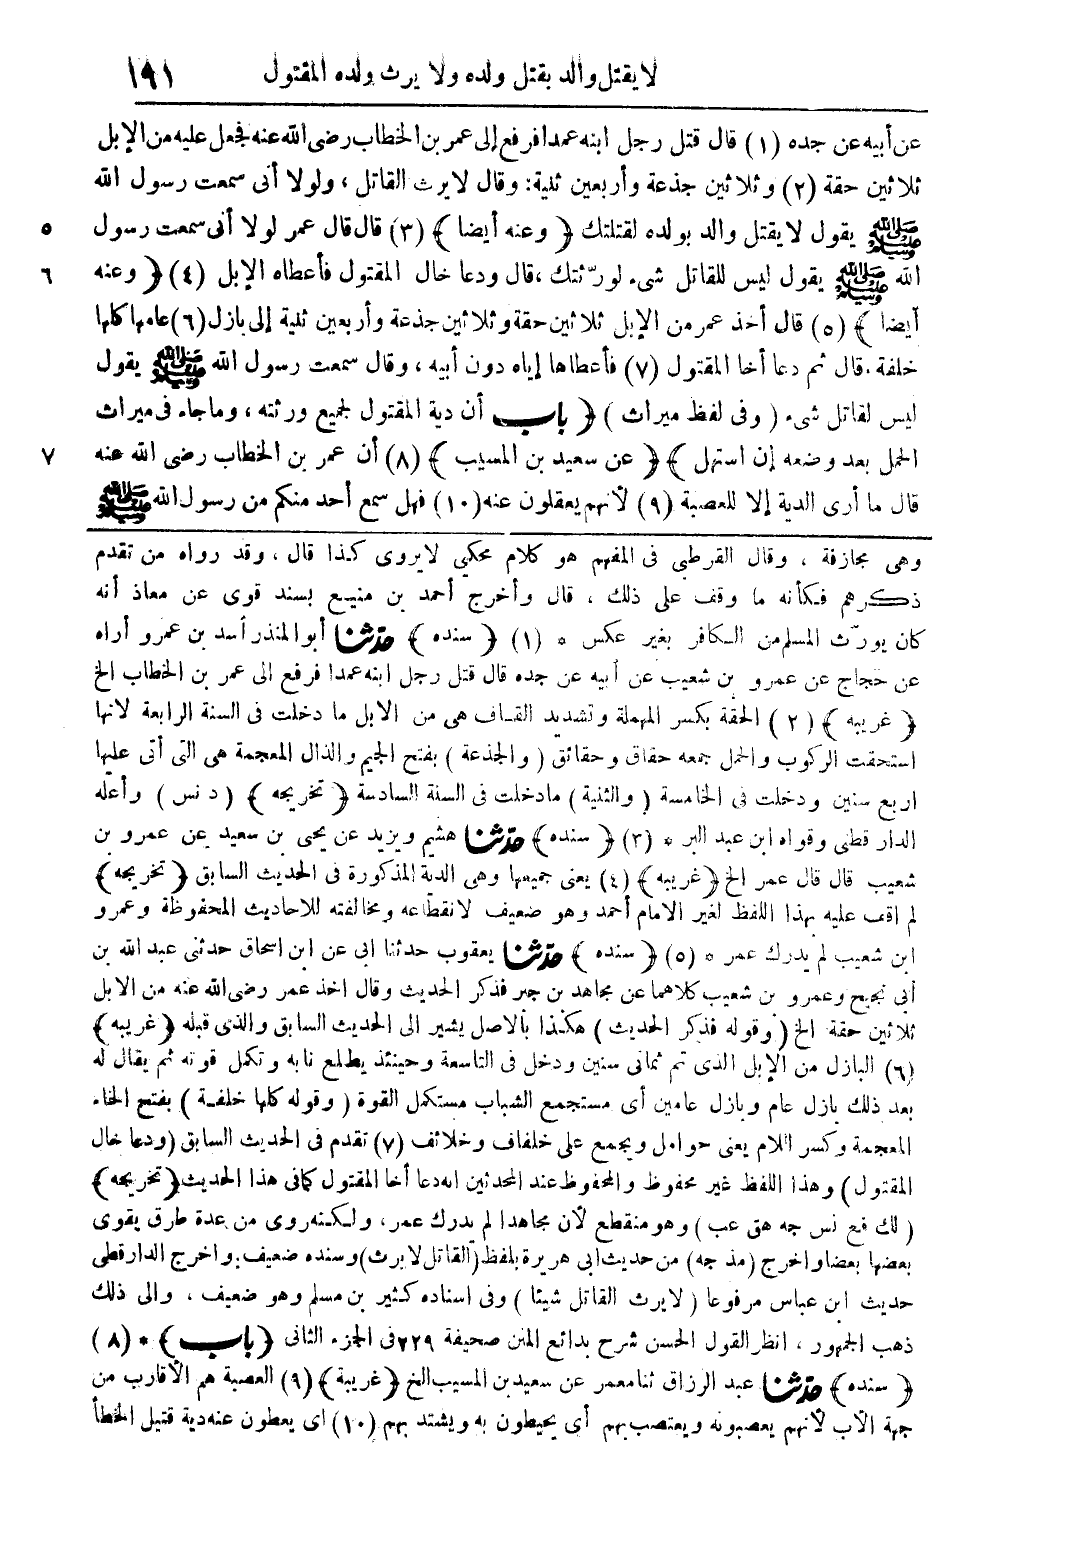 لا يقتل والد بقتل ولده ولا يرث ولده المقتول ١٩١
عن أبيه عن جده (١) قال قتل رجل ابنه عمدا فرفع إلى عمر بن الخطاب رضى الله عنه فجعل عليه من الإبل
ثلاثين حقة (٢) وثلاثين جذعة وأربعين ثنية: وقال لا يرث القاتل ، ولولا أنى سمعت رسول الله
ﷺ يقول لا يقتل والد بولده لقتلتك ﴿ وعنه أيضا ﴾ (٣) قال قال عمر لولا أنى سمعت رسول ٥
الله ﷺ يقول ليس للقاتل شىء لورّثتك ، قال ودعا خال المقتول فأعطاه الإبل (٤) ﴿ وعنه ٦
أيضا ﴾ (٥) قال أخذ عمر من الإبل ثلاثين حقة وثلاثين جذعة وأربعين ثنية إلى بازل (٦) عامها كلها
خلفة ، قال ثم دعا أخا المقتول (٧) فأعطاها إياه دون أبيه ، وقال سمعت رسول الله ﷺ يقول
ليس لقاتل شىء ( وفى لفظ ميراث ) ﴿ باب أن دية المقتول لجميع ورثته ، وما جاء فى ميراث
الحمل بعد وضعه إن استهل ﴾ ﴿ عن سعيد بن المسيب ﴾ (٨) أن عمر بن الخطاب رضى الله عنه ٧
قال ما أرى الدية إلا للعصبة (٩) لأنهم يعقلون عنه (١٠) فهل سمع أحد منكم من رسول الله ﷺ
وهى مجازفة ، وقال القرطبى فى المفهم هو كلام محكي لا يروى كذا قال ، وقد رواه من تقدم
ذكرهم فكأنه ما وقف على ذلك ، قال وأخرج أحمد بن منيع بسند قوى عن معاذ أنه
كان يورّث المسلم من الكافر بغير عكس * (١) ﴿ سنده ﴾ حدّثنا أبو المنذر أسد بن عمرو أراه
عن حجاج عن عمرو بن شعيب عن أبيه عن جده قال قتل رجل ابنه عمدا فرفع الى عمر بن الخطاب الخ
﴿ غريبه ﴾ (٢) الحقة بكسر المهملة وتشديد القاف هى من الابل ما دخلت فى السنة الرابعة لانها
استحقت الركوب والحمل جمعه حقاق وحقائق ( والجذعة ) بفتح الجيم والذال المعجمة هى التى أتى عليها
اربع سنين ودخلت فى الخامسة ( والثنية ) ما دخلت فى السنة السادسة ﴿ تخريجه ﴾ ( د نس ) وأعله
الدار قطنى وقواه ابن عبد البر * (٣) ﴿ سنده ﴾ حدّثنا هشيم ويزيد عن يحيى بن سعيد عن عمرو بن
شعيب قال قال عمر الخ ﴿ غريبه ﴾ (٤) يعنى جميعها وهى الدية المذكورة فى الحديث السابق ﴿ تخريجه ﴾
لم اقف عليه بهذا اللفظ لغير الامام أحمد وهو ضعيف لانقطاعه ومخالفته للاحاديث المحفوظة وعمرو
ابن شعيب لم يدرك عمر * (٥) ﴿ سنده ﴾ حدّثنا يعقوب حدثنا ابى عن ابن اسحاق حدثنى عبد الله بن
أبى نجيح وعمرو بن شعيب كلاهما عن مجاهد بن جبر فذكر الحديث وقال اخذ عمر رضى الله عنه من الابل
ثلاثين حقة الخ ( وقوله فذكر الحديث ) هكذا بالاصل يشير الى الحديث السابق والذى قبله ﴿ غريبه ﴾
(٦) البازل من الإبل الذى تم ثمانى سنين ودخل فى التاسعة وحينئذ يطلع نابه وتكمل قوته ثم يقال له
بعد ذلك بازل عام وبازل عامين أى مستجمع الشباب مستكمل القوة ( وقوله كلها خلفة ) بفتح الخاء
المعجمة وكسر اللام يعنى حوامل ويجمع على خلفات وخلائف (٧) تقدم فى الحديث السابق (ودعا خال
المقتول) وهذا اللفظ غير محفوظ والمحفوظ عند المحدثين انه دعا أخا المقتول كما فى هذا الحديث ﴿ تخريجه ﴾
( لك فع نس جه هق عب ) وهو منقطع لأن مجاهدا لم يدرك عمر، ولكنه روى من عدة طرق يقوى
بعضها بعضا واخرج (مذ جه) من حديث ابى هريرة بلفظ (القاتل لا يرث) وسنده ضعيف: واخرج الدارقطى
حديث ابن عباس مرفوعا ( لا يرث القاتل شيئا ) وفى اسناده كثير بن مسلم وهو ضعيف ، والى ذلك
ذهب الجمهور ، انظر القول الحسن شرح بدائع المنن صحيفة ٢٢٩ فى الجزء الثانى ﴿ باب ﴾ * (٨)
﴿ سنده ﴾ حدّثنا عبد الرزاق ثنا معمر عن سعيد بن المسيب الخ ﴿ غريبة ﴾ (٩) العصبة هم الأقارب من
جهة الأب لأنهم يعصبونه ويعتصب بهم أى يحيطون به ويشتد بهم (١٠) اى يعطون عنه دية قتيل الخطأ